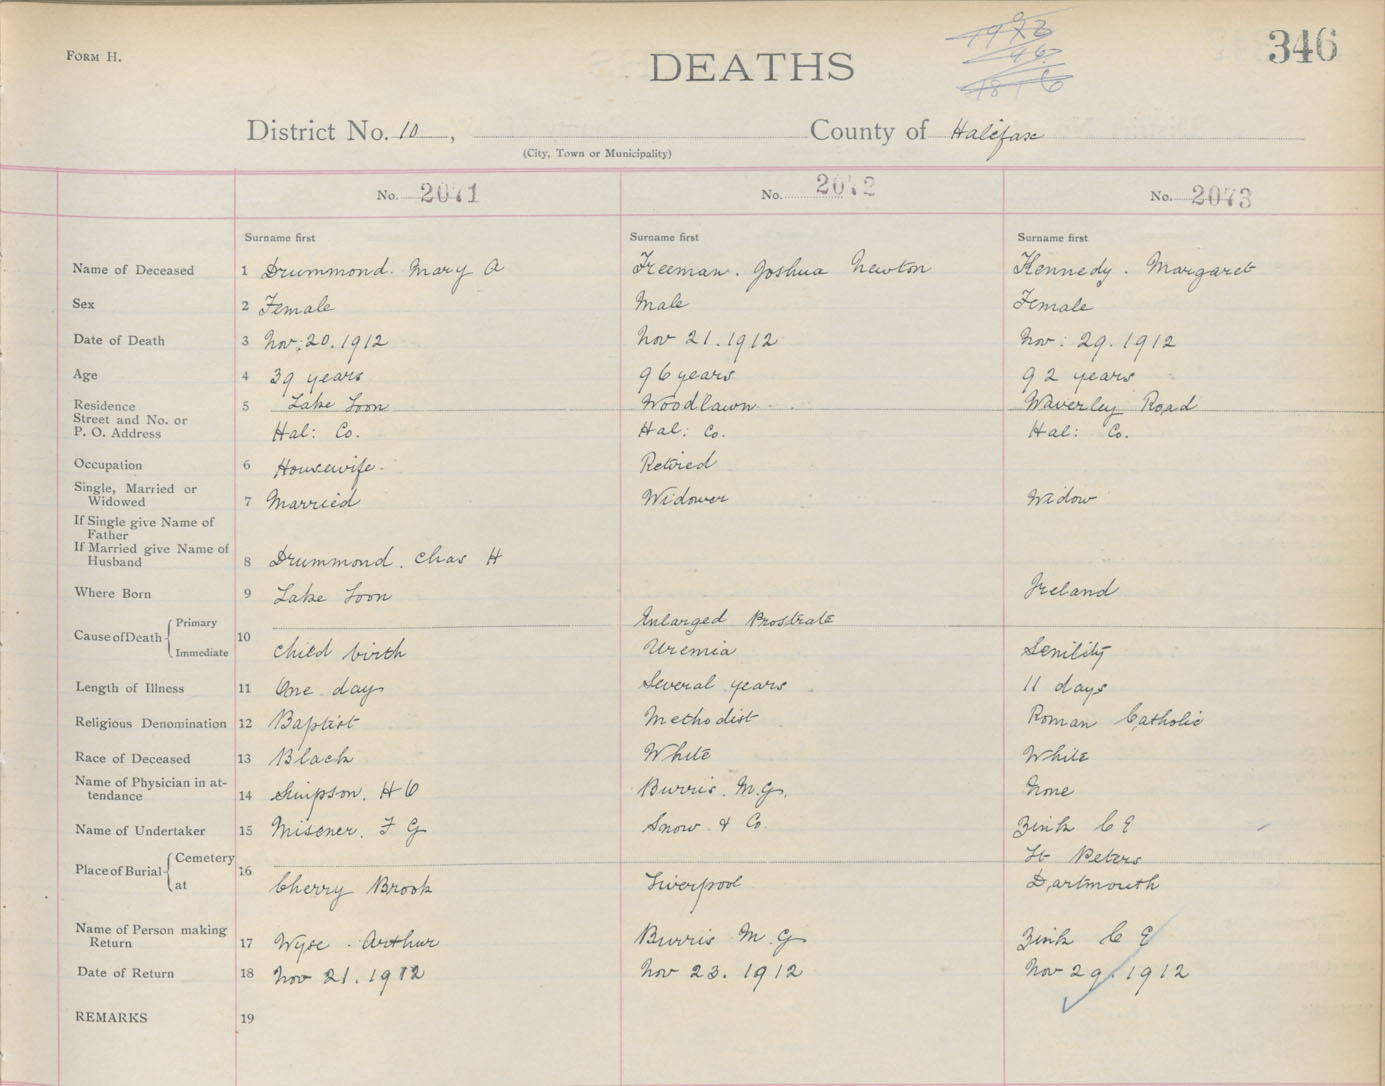 FORM H.
346
DEATHS
District No. 10, County of Halifax
(City, Town or Municipality)
No. 2071 No. 2072 No. 2073
Surname first Surname first Surname first
Name of Deceased 1 Drummond. Mary A Freeman. Joshua Newton Kennedy. Margaret
Sex 2 Female Male Female
Date of Death 3 Nov: 20. 1912 Nov 21. 1912 Nov: 29. 1912
Age 4 39 years 96 years 92 years
Residence 5 Lake Loon Woodlawn Waverley Road
Street and No. or
P. O. Address Hal: Co. Hal: Co. Hal: Co.
Occupation 6 Housewife. Retired
Single, Married or
Widowed 7 Married Widower Widow
If Single give Name of
Father
If Married give Name of
Husband 8 Drummond. Chas H
Where Born 9 Lake Loon Ireland
Cause of Death Primary Enlarged Prostrate
10
Immediate Child birth Uremia Senility
Length of Illness 11 One day Several years 11 days
Religious Denomination 12 Baptist Methodist Roman Catholic
Race of Deceased 13 Black White White
Name of Physician in at-
tendance 14 Simpson. H O Burris. M. G. None
Name of Undertaker 15 Misener. F G Snow & Co Zink C E
Place of Burial Cemetery 16 St Peters
at Cherry Brook Liverpool Dartmouth
Name of Person making
Return 17 Wyse. Arthur Burris M. G Zink C E
Date of Return 18 Nov 21. 1912 Nov 23. 1912 Nov 29. 1912
REMARKS 19